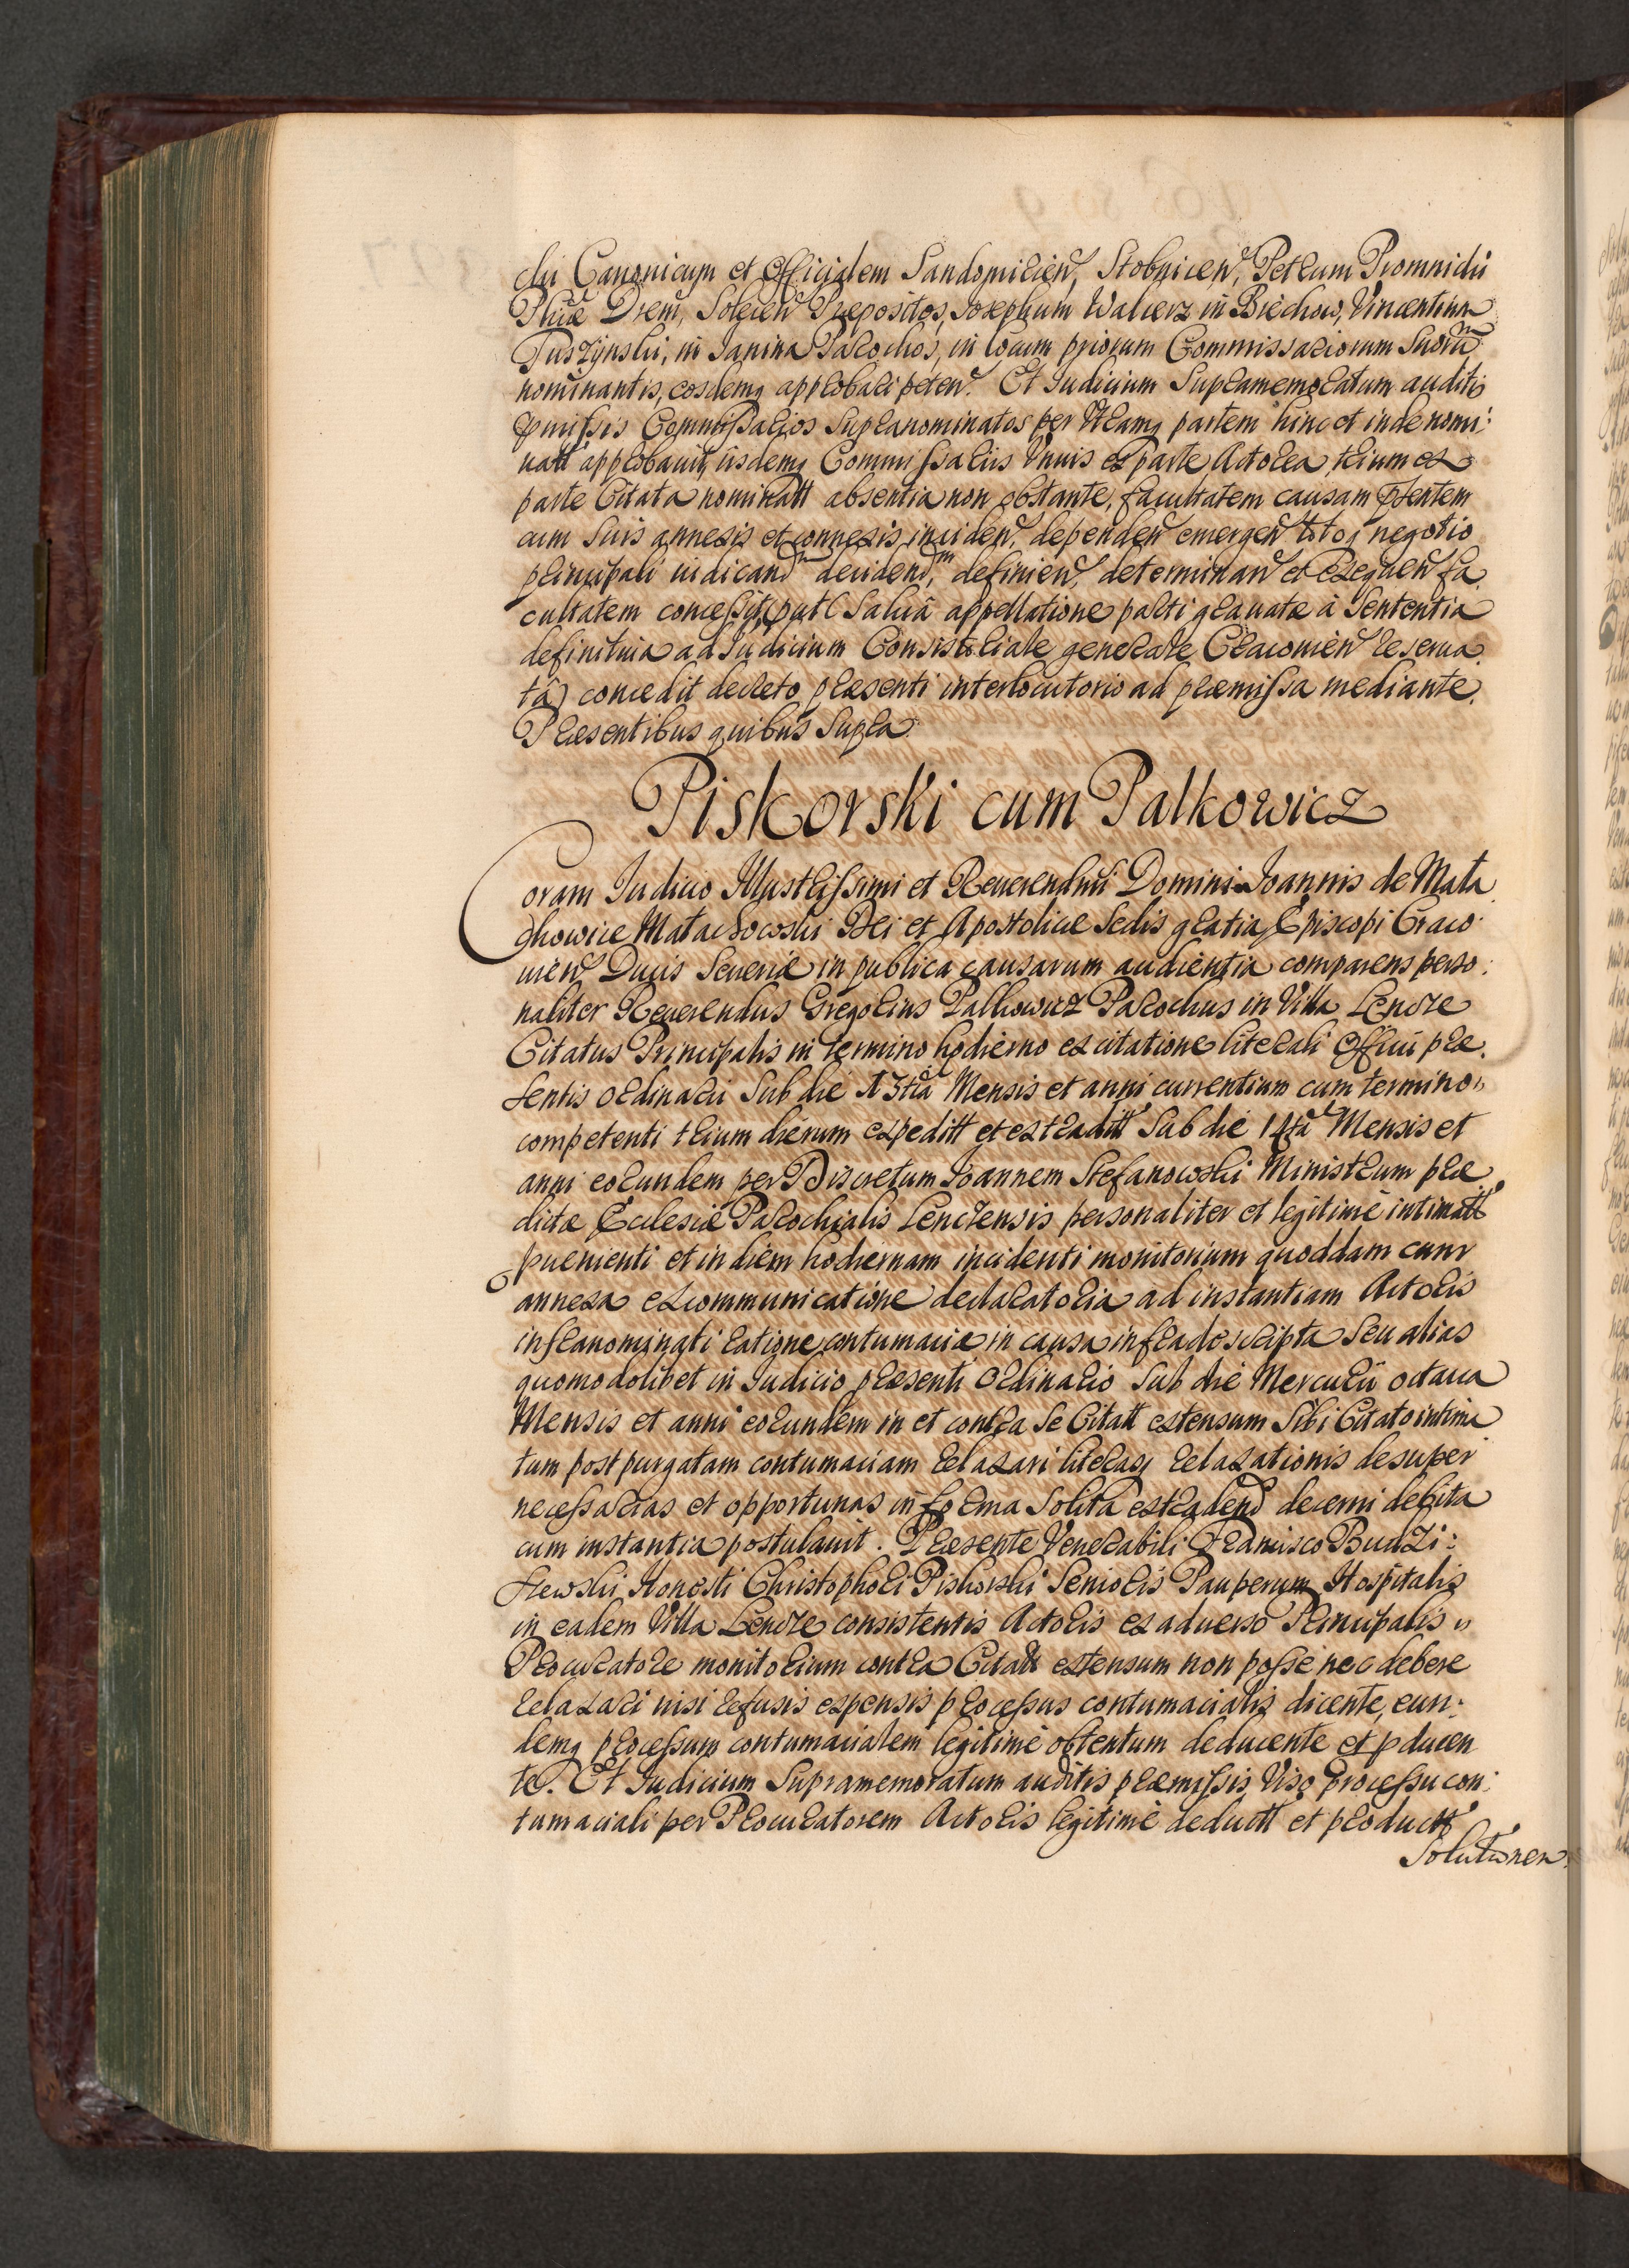 cki Canonicum et Officialem Sandomirien, Stobnicen, Petrum Promnicki
Phiae Drem, Solecen Praepositos, Josephum Walierz in Biechow, Vincentium
Puszynski, in Janina Parochos, in locum priorum Commissariorum Suorum
nominantis, eosdemq approbari peten. Et Judicium Supramemoratum auditis
pmissis Commissarios Supranominatos per Utramq partem hinc et inde nomi:
natt approbauit, iisdemq Commissariis Unius ex parte Actorea, trium ex
parte Citata nominatt absentia non obstante, facultatem causam pntem
cum suis annexis et connexis, inciden, dependen emergen totoq negotio
principali iudicandm decidendm, definien, determinan et exequen fa
cultatem concessit, (put Saluâ appellatione parti grauatae à Sententia
definitiua ad Judicium Consistoriale generale Cracouien reserua
tâ) concedit decreto praesenti interlocutorio ad praemissa mediante.
Praesentibus quibus Supra.
Piskorski cum Palkowicz
Coram Judicio Illustrissimi et Reuerendmi Domini Joannis de Mala
chowice Malachowski Dei et Apostolicae Sedis gratia Episcopi Craco
uien Ducis Seueriae in publica causarum audientia comparens perso:
naliter Reuerendus Gregorius Palkowicz Parochus in Villa Lencze
Citatus Principalis in termino hodierno ex citatione literali Officii prae
sentis ordinarii Sub die 13tia Mensis et anni currentium cum termino
competenti trium dierum expeditt et extraditt Sub die 14ta Mensis et
anni eorundem per Discretum Joannem Stefanowski Ministrum prae
dictae Ecclesiae Parochialis Lenczensis personaliter et legitimè intimatt
puenienti et in diem hodiernam incidenti monitorium quoddam cum
annexa excommunicatione declaratoria ad instantiam Actoris
infranominati ratione contumaciae in causa infradescripta Seu alias
quomodolibet in Judicio praesenti Ordinario Sub die Mercurii octaua
Mensis et anni eorundem in et contra Se Citatt extensum Sibi Citato intima
tum post purgatam contumaciam relaxari literasq relaxationis desuper
necessarias et opportunas in forma Solita extradend decerni debita
cum instantia postulauit. Praesente Venerabili Francisco Budzi:
szewski Honesti Christophori Piskorski Senioris Pauperum Hospitalis
in eadem Villa Lencze consistentis Actoris ex aduerso Principalis
Procuratore monitorium contra Citatt extensum non posse nec debere
relaxari nisi refusis expensis processus contumacialis dicente, eun:
demq processum contumacialem legitimè obtentum deducente et pducen
te. Et Judicium Supramemoratum auditis praemissis Viso processu con:
tumaciali per Procuratorem Actoris legitimè deductt et productt
Solutionem